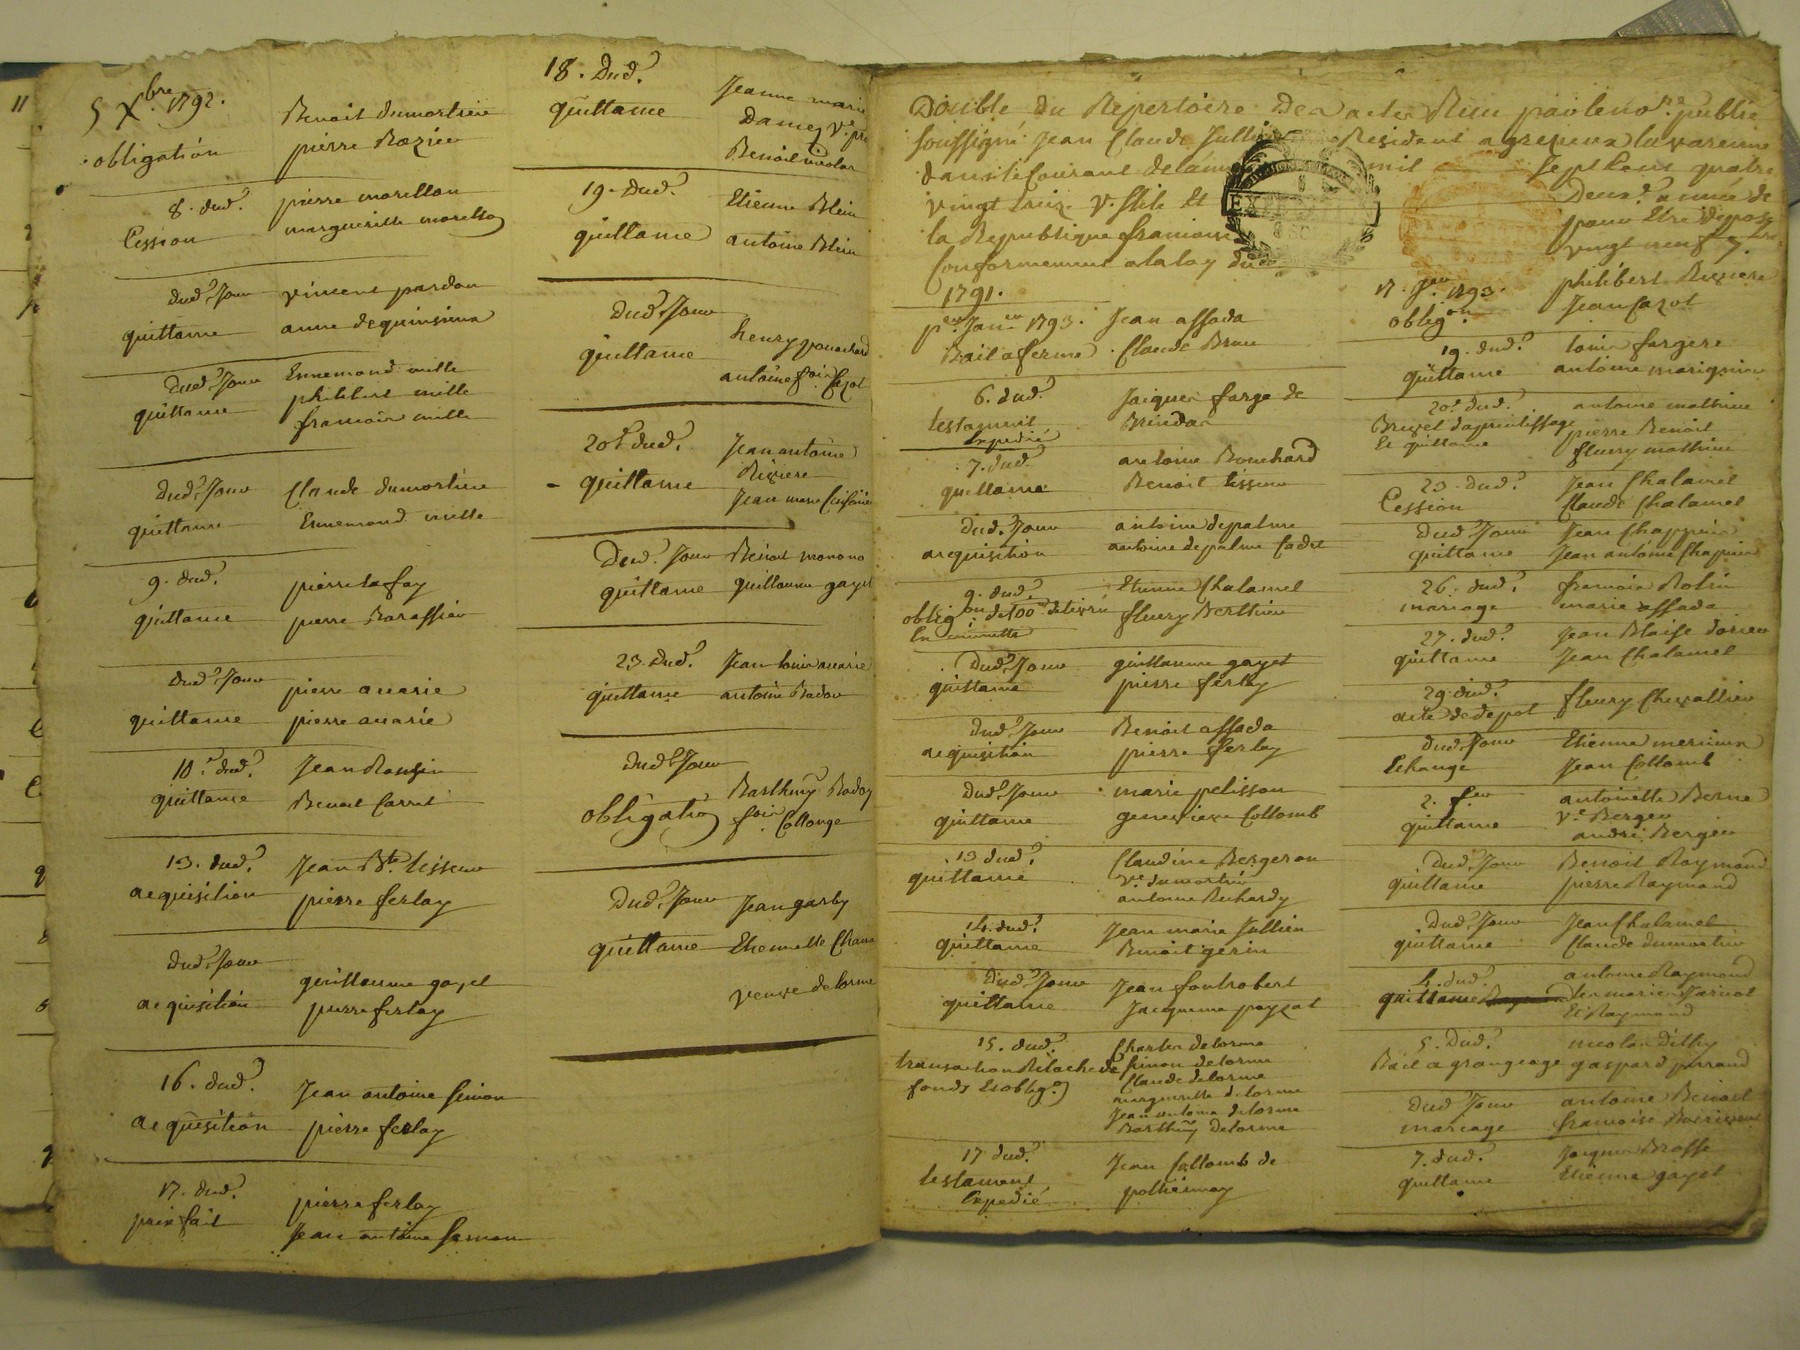 11
5 Xbre 1792.
obligation
Benoit Dumortier
pierre Rozier
8. dud.
Cession
pierre morellon
margueritte morellon
dud. Jour
quittance
vincent pardon
anne dequinsieux
dud. Jour
quittance
Ennemond mille
philibert mille
francois mille
dud. Jour
quittance
Claude dumortier
Ennemond mille
9. dud.
quittance
pierre lafay
pierre Barassier
dud. Jour
quittance
pierre avarie
pierre avarie
10. dud.
quittance
Jean
Benoit Carret
13. dud.
acquisition
Jean Bte. tisseur
pierre ferlay
dud. Jour
acquisition
guillaume gayet
pierre ferlay
16. dud.
acquisition
Jean antoine simon
pierre ferlay
17. dud.
prix fait
pierre ferlay
Jean antoine
18. Dud.
quittance
Jeanne marie
Damez Ve.
Benoit nicolas
19. dud.
quittance
Etienne Blein
antoine Blein
Dud. Jour
quittance
henry
antoine fois
20. dud.
quittance
Jean antoine
Riviere
Jean marie
Dud. Jour
quittance
Benoit
guillaume gayet
23. Dud.
quittance
Jean louis avarie
antoine Badou
dud. Jour
obligation
Barthmy
fois Collonge
Dud. Jour
quittance
Jean garby
Etiennette
veuve delorme
Double du Repertoire des actes Recu par le nore. public
soussigné Jean Claude Jullien Resident a grezieux lavarenne
dans le Courant de lannée mil sept Cent quatre
vingt treize V. stile Et Deuxe. année de
la Republique francaise pour Etre deposé
Conformement a la loy du vingt neuf 7bre.
1791.
per. Janer. 1793.
Bail a ferme
Jean assada
Claude Brun
6. dud.
testament
Expedié
Jacques farge de
Brindas
7. dud.
quittance
antoine Bouchard
Benoit tisseur
Dud. Jour
acquisition
antoine depalme
antoine depalme Cadet
9. dud.
obligon.
En minutte
Etienne Chalamel
fleury Berthier
Dud. Jour
quittance
guillaume gayet
pierre ferlay
Dud. Jour
acquisition
Benoit assada
pierre ferlay
Dud. Jour
quittance
marie pelisson
genevieve Collomb
13 dud.
quittance
Claudine Bergeron
ve. dumortier
antoine Richardy
14. dud.
quittance
Jean marie Jullien
Benoit gerin
Dud. Jour
quittance
Jean fontrobert
Jacquemme payzat
15. dud.
transaction Relache de
fonds Et oblig.
Charles delorme
simon delorme
Claude delorme
marguerritte delorme
Jean antoine delorme
Barthmy Delorme
17 dud.
testament
Expedié
Jean Collomb de
pollieinay
17. Jer. 1793.
obligon.
philibert Riviere
Jean Cazot
19. dud.
quittance
louis fargere
antoine marignier
20. dud.
Brevet dapprentissage
Et quittance
antoine mathieu
pierre Benoit
fleury mathieu
23. dud.
Cession
Jean Chalamel
Claude Chalamel
Dud. Jour
quittance
Jean Chappuis
Jean antoine Chapuis
26. dud.
mariage
francois Bolin
marie assada
27. dud.
quittance
Jean Blaise dorier
Jean Chalamel
29. dud.
acte de depot
fleury Chevallier
dud. Jour
Echange
Etienne mercieux
Jean Collomb
2. fer.
quittance
antoinette Berne
ve. Berger
andré Berger
Dud. Jour
quittance
Benoit Raymond
pierre Raymond
Dud. Jour
quittance
Jean Chalamel
Claude dumortier
4. dud.
quittance
antoine Raymond
Et Raymond
5. Dud.
Bail a grangeage
nicolas Dithy
gaspard perrand
Dud Jour
mariage
antoine Benoit
francoise
7. dud.
quittance
Jacques Brosse
Etienne gayet